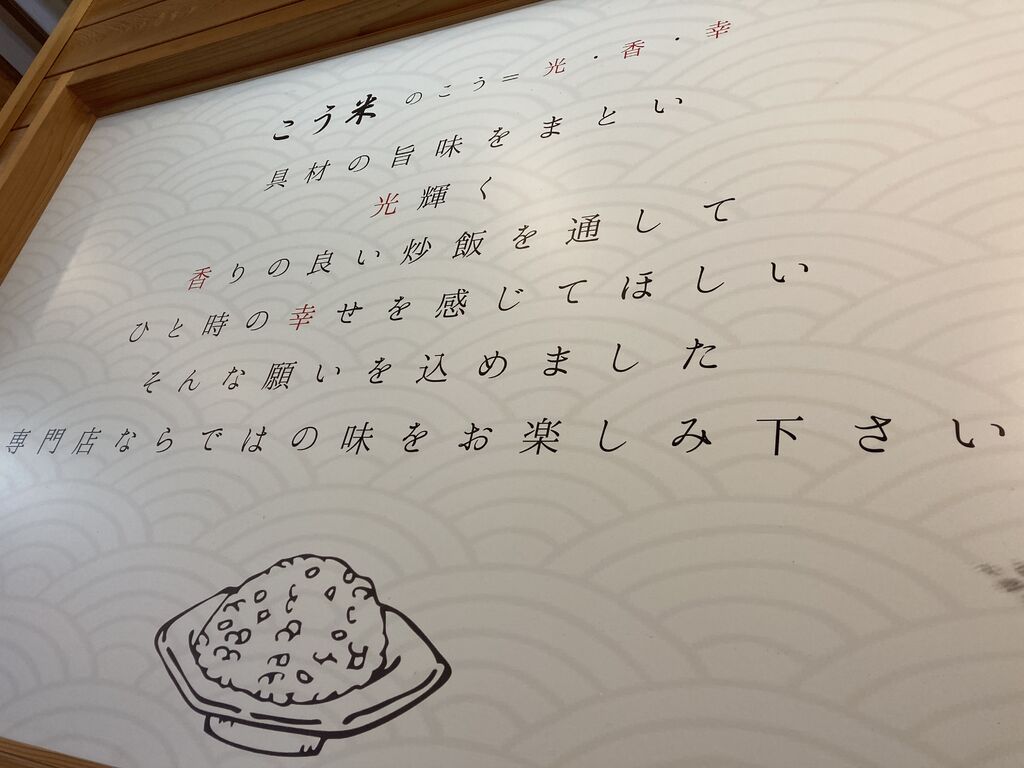 こう米のこう＝光・香・幸
具材の旨味をまとい
光輝く
香りの良い炒飯を通して
ひと時の幸せを感じてほしい
そんな願いを込めました
専門店ならではの味をお楽しみ下さい